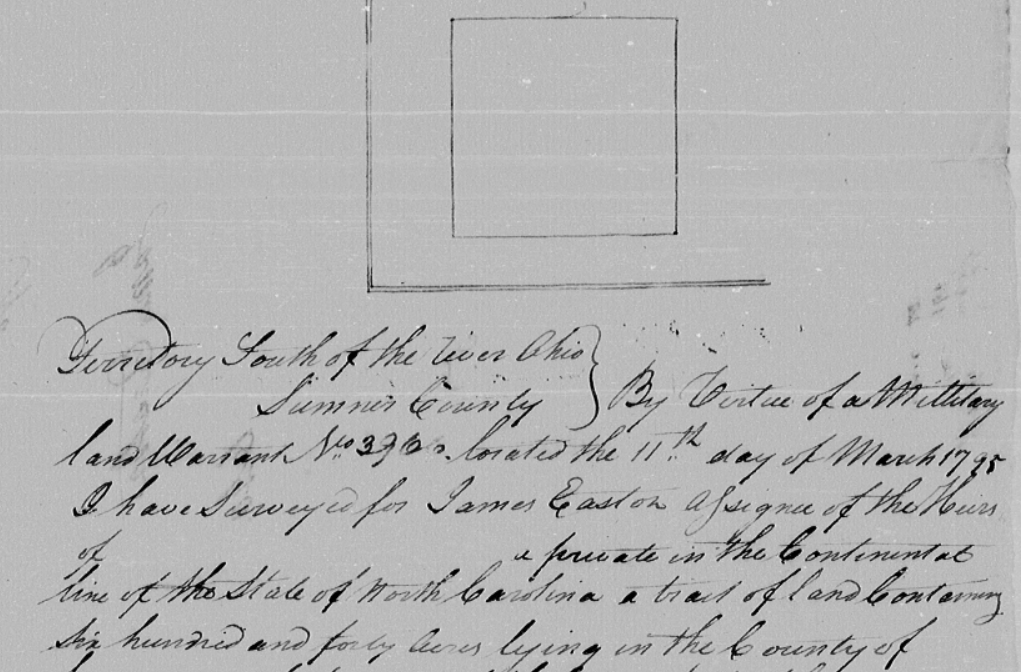 Territory South of the River Ohio
Sumner County } By Virtue of a Millitary
land Warrant No located the 11th day of March 1795
I have Surveyed for James Easton Assignee of the Heirs
of a private in the Continental
line of the State of North Carolina a tract of land Containing
Six hundred and forty Acres lying in the County of